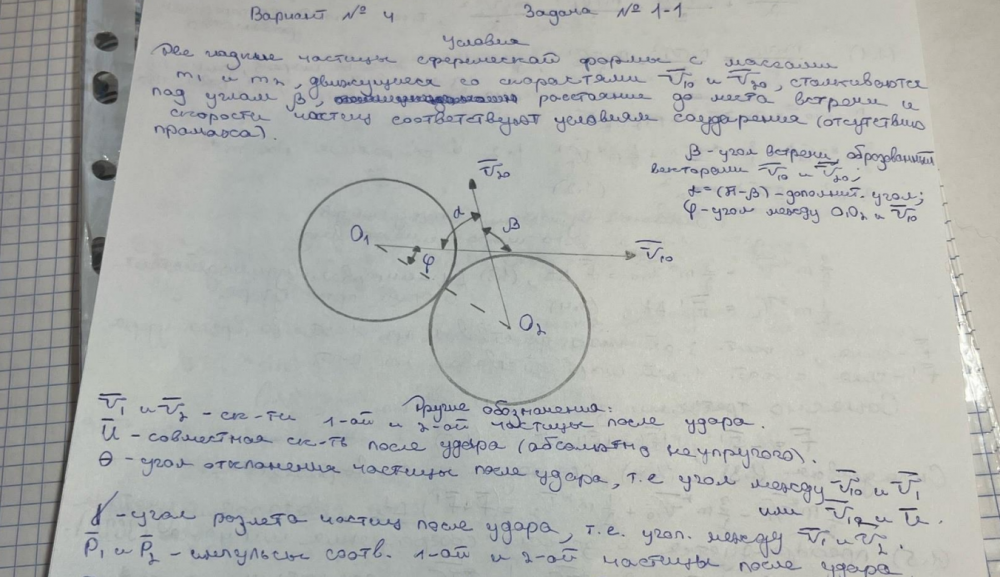 Вариант № 4 Задача № 1-1
Условия
Две гладкие частицы сферической формы с массами
m₁ и m₂, движущиеся со скоростями V̅₁₀ и V̅₂₀, сталкиваются
под углом β, расстояние до места встречи и
скорости частиц соответствуют условиям соударения (отсутствию
промаха).
β - угол встречи, образованный
векторами V̅₁₀ и V̅₂₀;
α = (π-β) - дополнит. угол;
φ - угол между O₁O₂ и V̅₁₀
V̅₂₀
α
β
O₁
φ
V̅₁₀
O₂
Другие обозначения:
V̅₁ и V̅₂ - ск-ти 1-ой и 2-ой частицы после удара.
U̅ - совместная ск-ть после удара (абсолютно неупругого).
θ - угол отклонения частицы после удара, т.е угол между V̅₁₀ и V̅₁
или V̅₁₀ и U̅.
γ - угол разлета частиц после удара, т.е. угол. между V̅₁ и V̅₂.
P̅₁ и P̅₂ - импульсы соотв. 1-ой и 2-ой частицы после удара